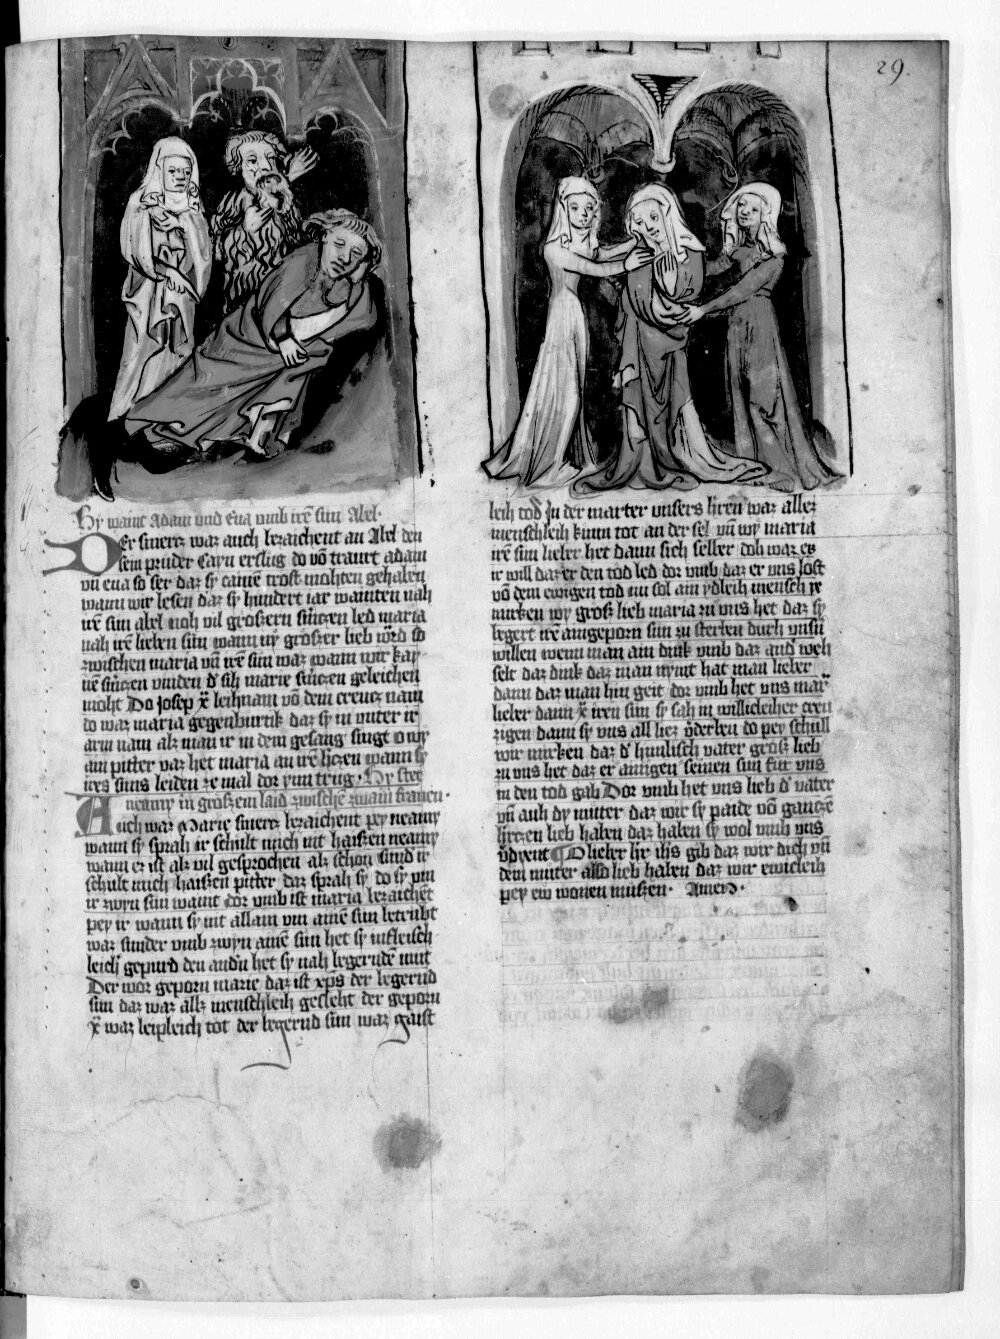 29.
Hy waint Adam vnd Eua vmb irē sun Abel·
Der smercz war auch bezaichent an Abel den
sein pruder Cayn erslug do vō traurt adam
vn̄ eua so ser daz sy cainē trost mohten gehaben
wann wir lesen daz sy hundert iar wainten nah
irē sun abel noh vil grōszern smerczen led maria
nah irē lieben sun wann ny grōszer lieb wōrd so
zwischen maria vn̄ irē sun waz wann wir kay-
nē smerczen vinden dˀ sih marie smerczen geleichen
moht Do Josep xp̄i leihnam vō dem creucz nam
do waz maria gegenburtik daz sy in vnter ir
arm nam alz man ir in dem gesang singt o wy
ain pitter vaz het maria an irē herczen wann sy
irs suns leiden ze mal dor ynn trug· Hy stet
neamy in groszem laid zwischē zwain frauen·
Auch waz Marie smercz bezaichent pey neamy
wann sy sprah ir schult mich nit haiszen neamy
wann ez ist alz vil gesprochen alz schon sund ir
schult mich haiszen pitter daz sprah sy do sy vm
ir zwen sun waint dor vmb ist maria bezaichēt
pey ir wann sy nit allain vm ainē sun betrubt
waz sunder vmb zwen ainē sun het sy in fleisch-
leich gepurd den andn̄ het sy nah begerūdē mut
Der wor geporn marie daz ist xp̄s der begernd
sun daz waz allz menschleih gesleht der geporn
xp̄ waz leipleich tot der begernd sun waz gaist
leih tod In der marter vnsers hren waz allez
menschleih kunn tot an der sel vn̄ wy maria
irē sun lieber het dann sich selber doh waz ez
ir will daz er den tod led dor vmb daz er vns lost
vō dem ewigen tod nu sol ain ydleih mensch ye
merken wy grosz lieb maria zu vns het daz sy
begert irē aingeporn sun zu sterben durch vnsn̄
willen wenn man ain dink vmb daz and̄ weh
selt daz dink daz man nymt hat man lieber
dann daz man hin geit dor vmb het vns mar
lieber dann xp̄ iren sun sy sah in willicleiher creu
zigen dann sy vns all liez vˀderben do pey schull
wir merken daz dˀ himlisch vater grosz lieb
zu vns het daz er ainigen seinen sun fur vns
in den tod gab Dor vmb het vns lieb dˀ vater
vn̄ auh dy muter daz wir sy paide vō ganczē
herczen lieb haben daz haben sy wol vmb vns
vˀdient O lieber hˀ ihs gib daz wir dich vn̄
dein muter also lieb haben daz wir ewicleih
pey ew wonen muszen· Amen·